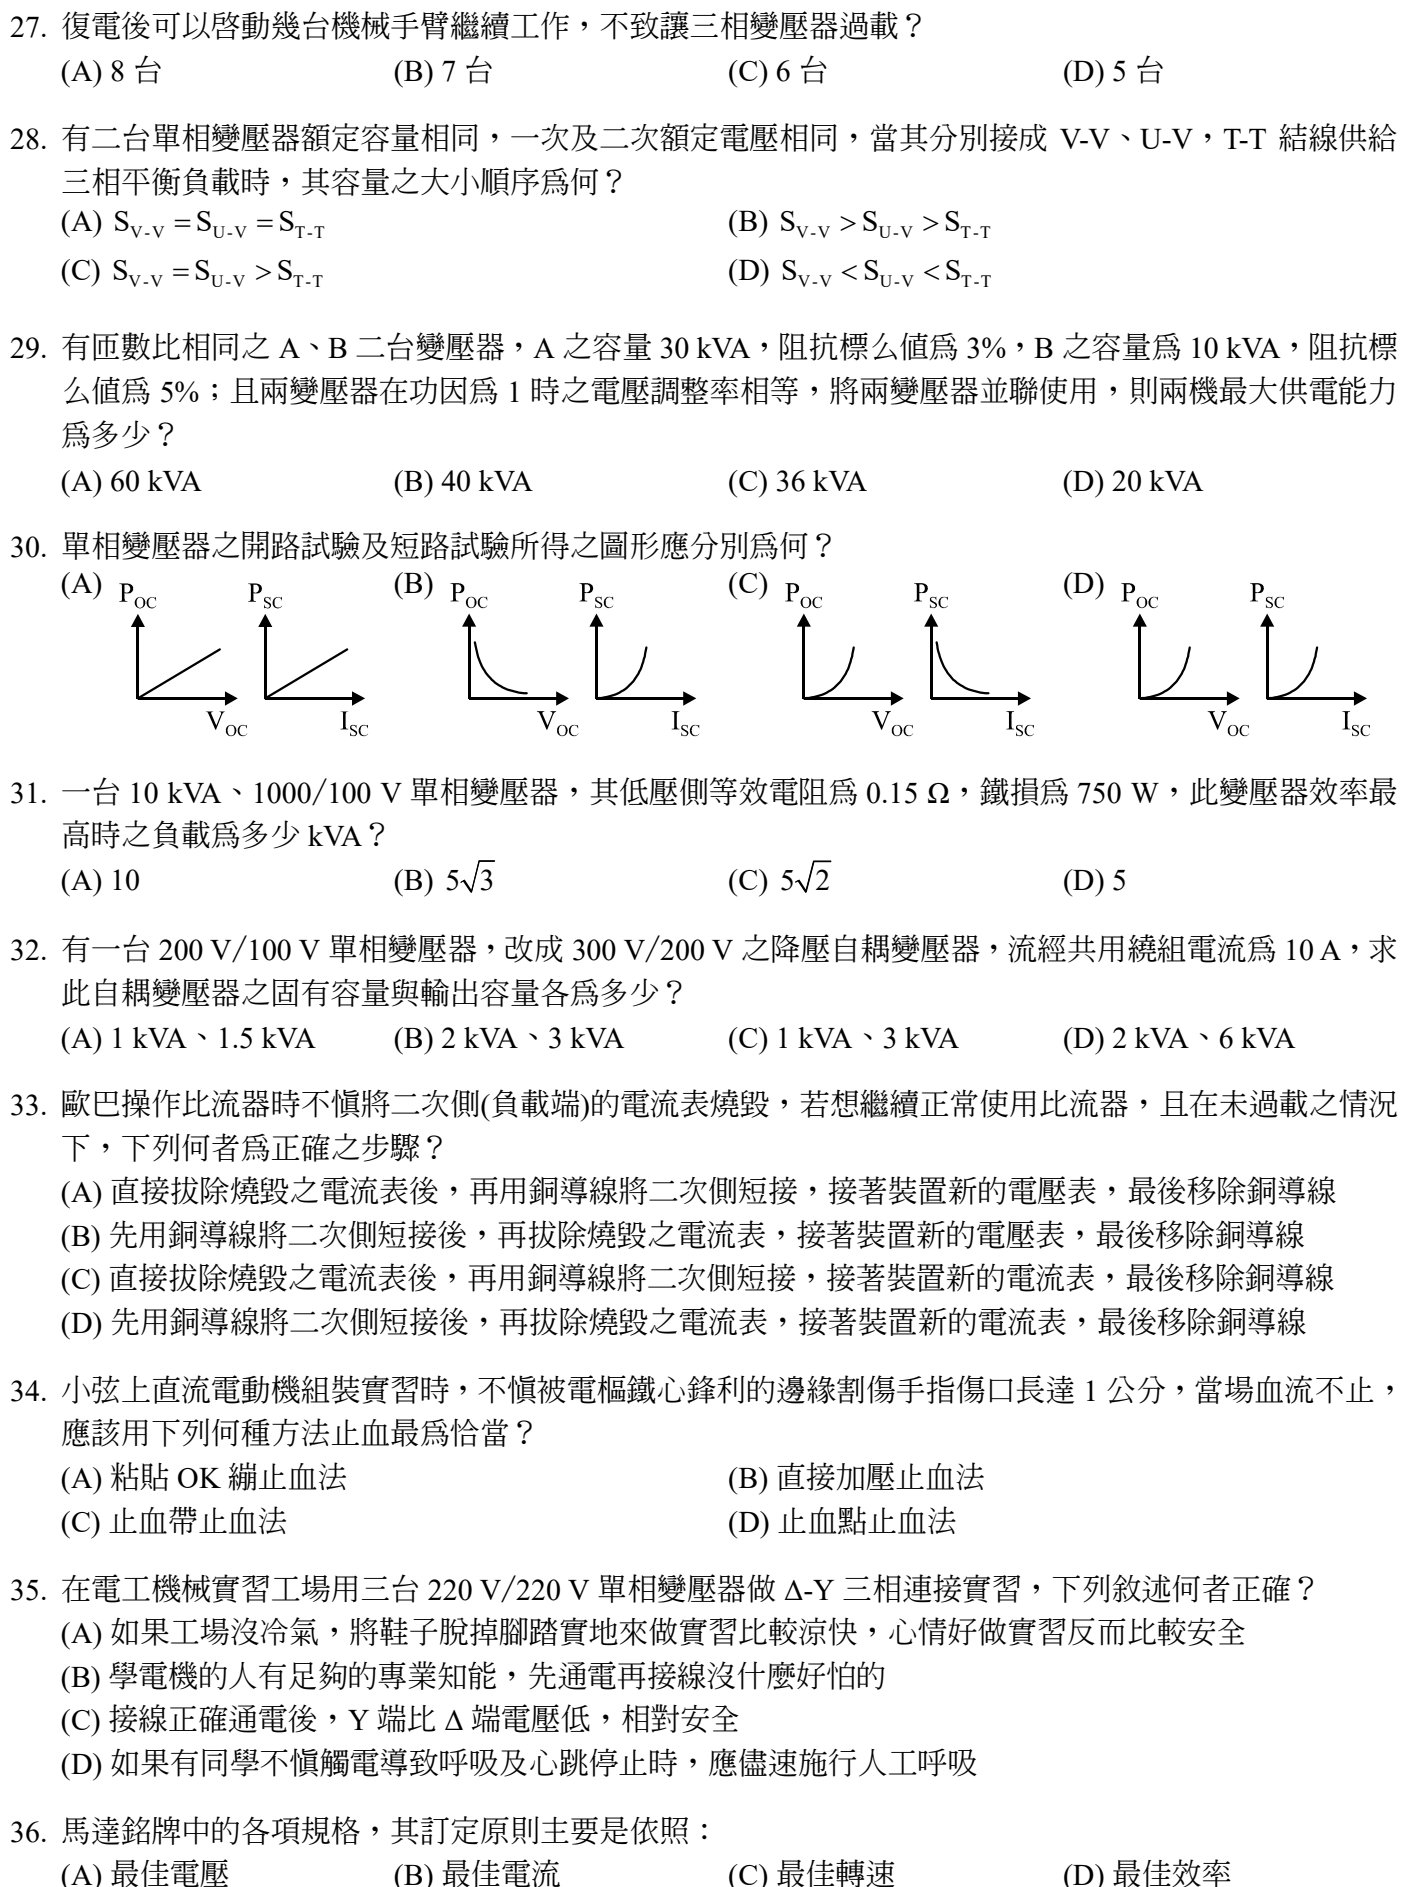 27. 復電後可以啓動幾台機械手臂繼續工作，不致讓三相變壓器過載？
(A) 8 台 (B) 7 台 (C) 6 台 (D) 5 台
28. 有二台單相變壓器額定容量相同，一次及二次額定電壓相同，當其分別接成 V-V、U-V，T-T 結線供給
三相平衡負載時，其容量之大小順序爲何？
(A) S_{V-V} = S_{U-V} = S_{T-T} (B) S_{V-V} > S_{U-V} > S_{T-T}
(C) S_{V-V} = S_{U-V} > S_{T-T} (D) S_{V-V} < S_{U-V} < S_{T-T}
29. 有匝數比相同之 A、B 二台變壓器，A 之容量 30 kVA，阻抗標么値爲 3%，B 之容量爲 10 kVA，阻抗標
么値爲 5%；且兩變壓器在功因爲 1 時之電壓調整率相等，將兩變壓器並聯使用，則兩機最大供電能力
爲多少？
(A) 60 kVA (B) 40 kVA (C) 36 kVA (D) 20 kVA
30. 單相變壓器之開路試驗及短路試驗所得之圖形應分別爲何？
(A) P_{OC} P_{SC} (B) P_{OC} P_{SC} (C) P_{OC} P_{SC} (D) P_{OC} P_{SC}
V_{OC} I_{SC} V_{OC} I_{SC} V_{OC} I_{SC} V_{OC} I_{SC}
31. 一台 10 kVA、1000/100 V 單相變壓器，其低壓側等效電阻爲 0.15 Ω，鐵損爲 750 W，此變壓器效率最
高時之負載爲多少 kVA？
(A) 10 (B) 5√3 (C) 5√2 (D) 5
32. 有一台 200 V/100 V 單相變壓器，改成 300 V/200 V 之降壓自耦變壓器，流經共用繞組電流爲 10 A，求
此自耦變壓器之固有容量與輸出容量各爲多少？
(A) 1 kVA、1.5 kVA (B) 2 kVA、3 kVA (C) 1 kVA、3 kVA (D) 2 kVA、6 kVA
33. 歐巴操作比流器時不愼將二次側(負載端)的電流表燒毀，若想繼續正常使用比流器，且在未過載之情況
下，下列何者爲正確之步驟？
(A) 直接拔除燒毀之電流表後，再用銅導線將二次側短接，接著裝置新的電壓表，最後移除銅導線
(B) 先用銅導線將二次側短接後，再拔除燒毀之電流表，接著裝置新的電壓表，最後移除銅導線
(C) 直接拔除燒毀之電流表後，再用銅導線將二次側短接，接著裝置新的電流表，最後移除銅導線
(D) 先用銅導線將二次側短接後，再拔除燒毀之電流表，接著裝置新的電流表，最後移除銅導線
34. 小弦上直流電動機組裝實習時，不愼被電樞鐵心鋒利的邊緣割傷手指傷口長達 1 公分，當場血流不止，
應該用下列何種方法止血最爲恰當？
(A) 粘貼 OK 繃止血法 (B) 直接加壓止血法
(C) 止血帶止血法 (D) 止血點止血法
35. 在電工機械實習工場用三台 220 V/220 V 單相變壓器做 Δ-Y 三相連接實習，下列敘述何者正確？
(A) 如果工場沒冷氣，將鞋子脫掉腳踏實地來做實習比較涼快，心情好做實習反而比較安全
(B) 學電機的人有足夠的專業知能，先通電再接線沒什麼好怕的
(C) 接線正確通電後，Y 端比 Δ 端電壓低，相對安全
(D) 如果有同學不愼觸電導致呼吸及心跳停止時，應儘速施行人工呼吸
36. 馬達銘牌中的各項規格，其訂定原則主要是依照：
(A) 最佳電壓 (B) 最佳電流 (C) 最佳轉速 (D) 最佳效率